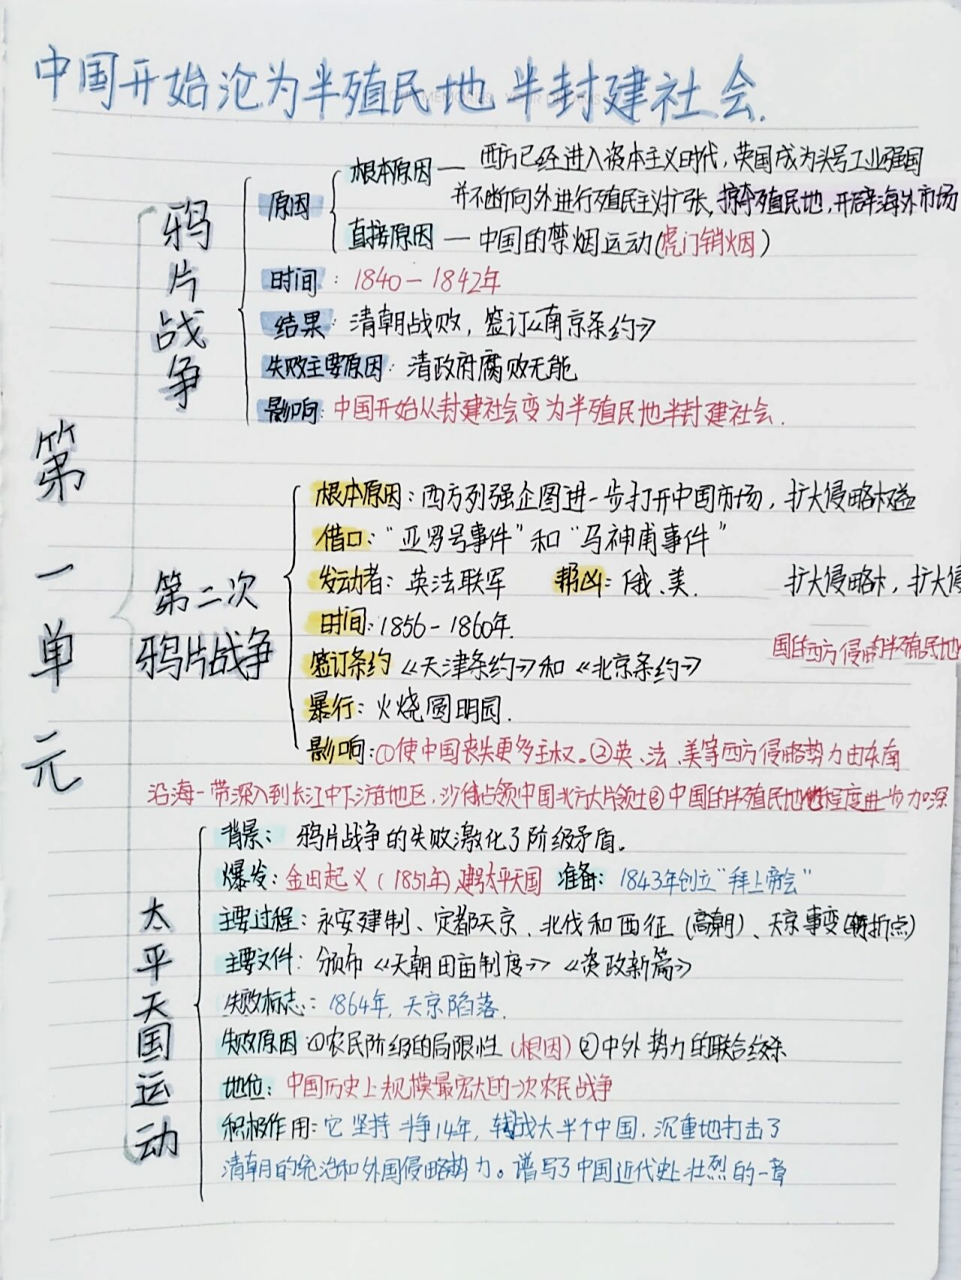 中国开始沦为半殖民地半封建社会.
第一单元
鸦片战争
原因
根本原因— 西方已经进入资本主义时代,英国成为头号工业强国
并不断向外进行殖民主义扩张,掠夺殖民地,开辟海外市场
直接原因 — 中国的禁烟运动(虎门销烟)
时间: 1840—1842年
结果: 清朝战败,签订《南京条约》
失败主要原因: 清政府腐败无能
影响: 中国开始从封建社会变为半殖民地半封建社会.
第二次
鸦片战争
根本原因: 西方列强企图进一步打开中国市场,扩大侵略权益
借口:“亚罗号事件”和“马神甫事件”
发动者: 英法联军 帮凶: 俄、美.
扩大侵略
时间: 1856-1860年.
签订条约《天津条约》和《北京条约》
国 西方侵 半殖民地
暴行: 火烧圆明园.
影响:①使中国丧失更多主权。②英、法、美等西方侵略势力由东南
沿海一带深入到长江中下游地区,沙俄占领中国北方大片领土③中国的半殖民地化程度进一步加深
太平天国运动
背景: 鸦片战争的失败激化了阶级矛盾。
爆发: 金田起义(1851年)建号太平天国 准备: 1843年创立“拜上帝会”
主要过程: 永安建制、定都天京、北伐和西征(高潮)、天京事变(转折点)
主要文件: 颁布《天朝田亩制度》《资政新篇》
失败标志: 1864年,天京陷落.
失败原因①农民阶级的局限性(根因)②中外势力的联合绞杀
地位: 中国历史上规模最宏大的一次农民战争
积极作用: 它坚持斗争14年,转战大半个中国.沉重地打击了
清朝的统治和外国侵略势力。谱写了中国近代史壮烈的一章